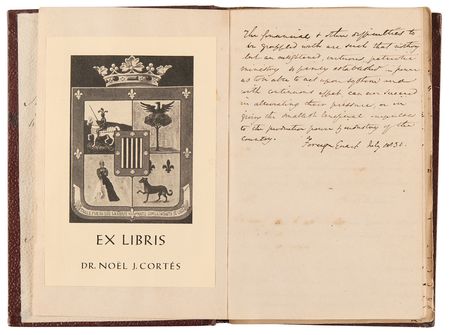 EX LIBRIS
DR. NOËL J. CORTÉS
The financial & other difficulties to
be grappled with are such that nothing
but an enlightened, cautious, patriotic
ministry & firmly established
as to be able to act upon system and
with continuous effect can succeed
in alleviating their pressure, or in
giving the smallest
to the productive power & industry of the
country.
July 1831.